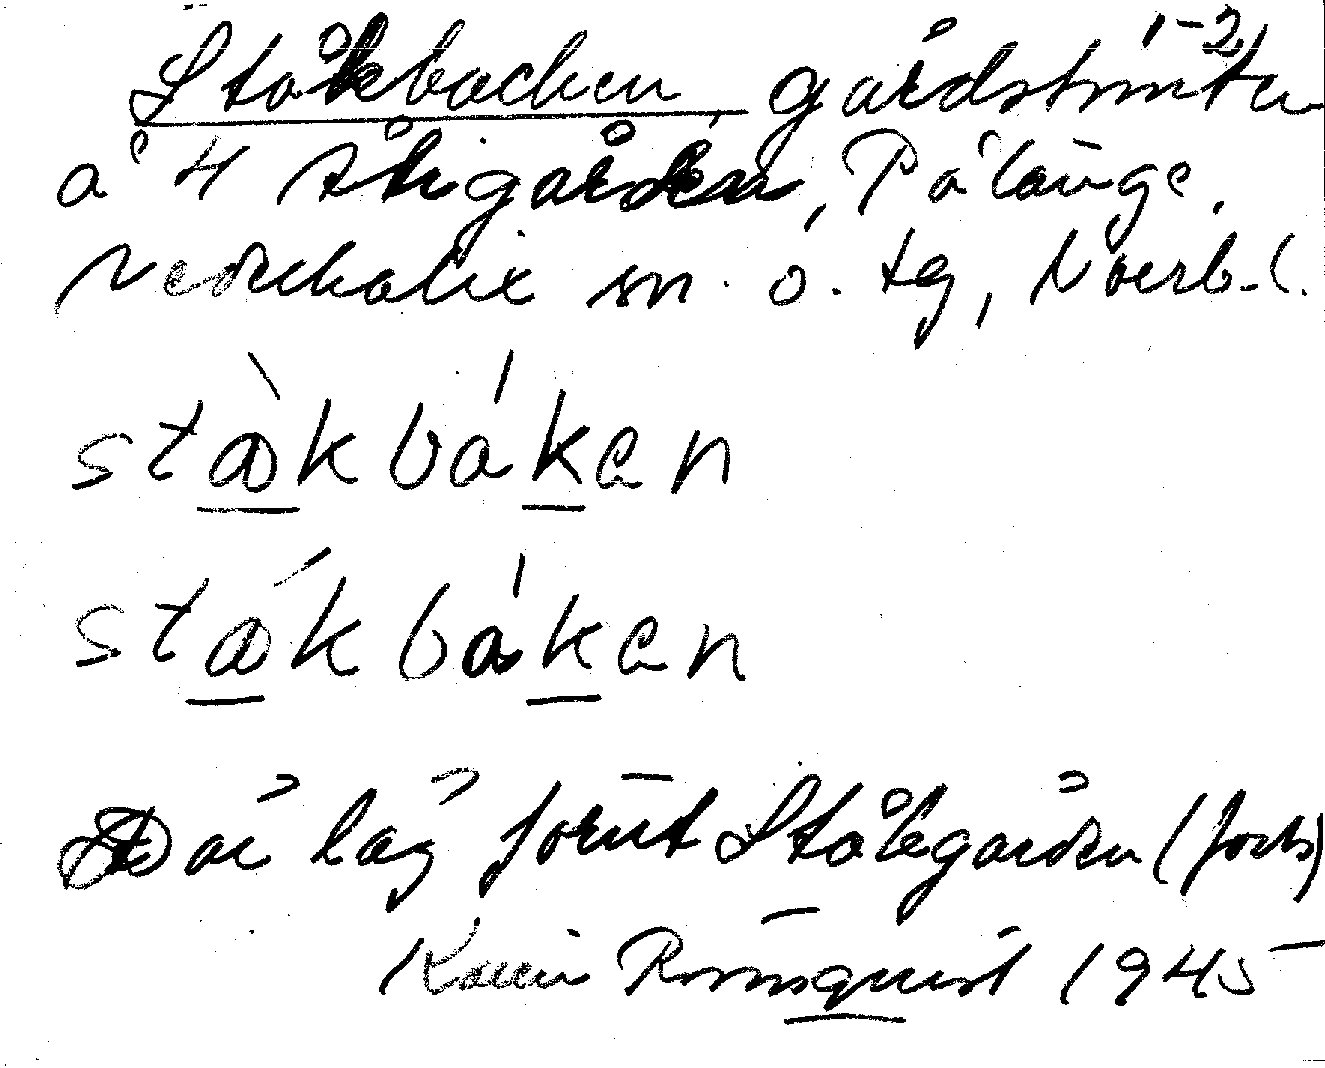 Ståkbacken gårdstomten 1-2
å 4 Ståkgården, Pålänge,
Nederkalix sn. o. tg, Norrb. l.
stàkbákan
stákbákan
Där låg förut Ståkgården (forts)
Karin Rönnquist 1945